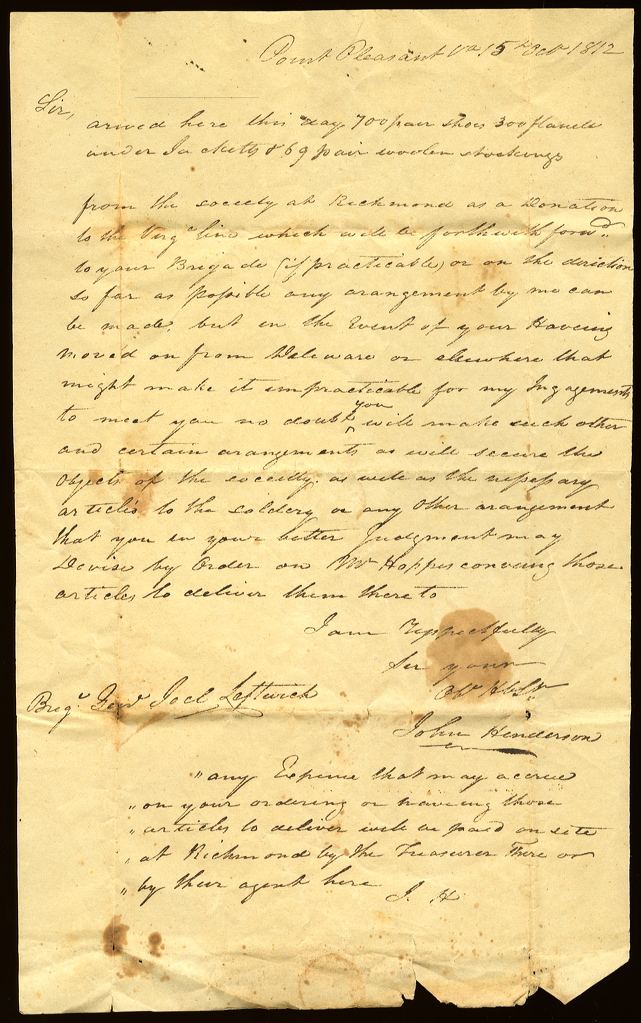 Point Pleasant Va 15th Octr 1812
Sir,
arived here this day 700 pair shoes 300 flanele
under Jacketts & 69 pair woolen stockings
from the society at Richmond as a Donation
to the Virga line which will be forthwith forwd.
to your Brigade (if practicable) or on the direction
so far as possible any arangement by me can
be made. but in the Event of your Haveing
moved on from Deleware or elsewhere that
might make it impracticable for my Ingagements
to meet you no doubt you will make such other
and certain arangements as will secure the
objects of the society. as well as the nessessary
articles to the soldery or any other arangement
that you in your better Judgment may
Devise by order on Mr conveing those
articles to deliver them there to
I am Respectfully
Sir your
Obt Hble St
Brigr Genl Joel Leftwich
John Henderson
" any Expense that may accrue
" on your ordering or haveing those
" articles to deliver will be paid on site
" at Richmond by the Treasurer there or
" by their agent here
J. H